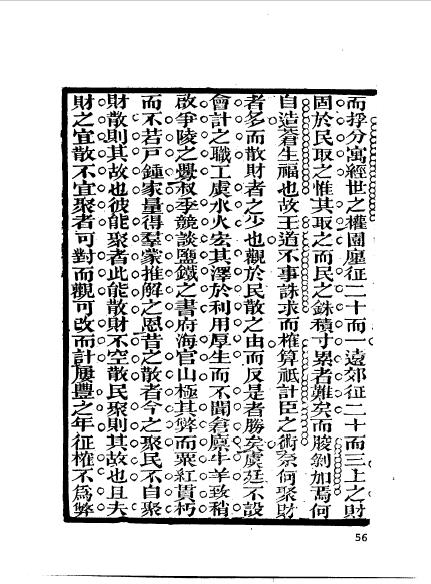 而捊分寓經世之權園廛征二十而一遠郊征二十而三上之財
固於民取之惟其取之而民之銖積寸累者難矣而朘剝加焉何
自造蒼生福也故王道不事誅求而榷算祇計臣之術奈何聚財
者多而散財者之少也觀於民散之由而反是者勝矣虞廷不設
會計之職工虞水火宏其澤於利用厚生而不聞倉廩牛羊致稍
啟爭陵之釁叔季競談鹽鐵之書府海官山極其弊而粟紅貫朽
而不若戸鍾家量得羣蒙推解之恩昔之散者今之聚民不自聚
財散則其故也彼能聚者此能散財不空散民聚則其故也且夫
財之宜散不宜聚者可對而觀可改而計屢豐之年征榷不爲弊
56